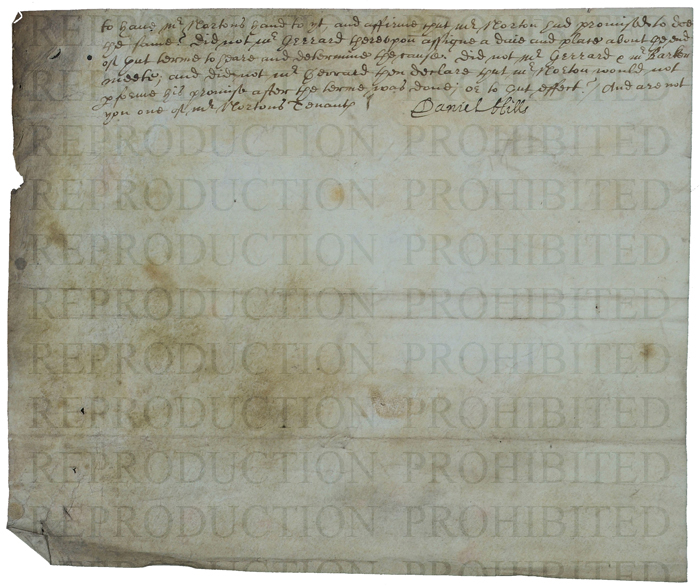 to have Mr Mortons hand to yt, and affirme that Mr Morton had promised to doe
the same? Did not Mr Gerrard thereupon assigne a daie and place about the end
of that terme to heare and determine the cause. Did not Mr Gerrard & Mr Barton
meete, and did not Mr Gerrard then declare that Mr Morton would not
pforme his promise after the terme was done; or to that effect? And are not
you one of Mr Mortons Tenants?
Daniel Hills
REPRODUCTION PROHIBITED
REPRODUCTION PROHIBITED
REPRODUCTION PROHIBITED
REPRODUCTION PROHIBITED
REPRODUCTION PROHIBITED
REPRODUCTION PROHIBITED
REPRODUCTION PROHIBITED
REPRODUCTION PROHIBITED
REPRODUCTION PROHIBITED
REPRODUCTION PROHIBITED
REPRODUCTION PROHIBITED